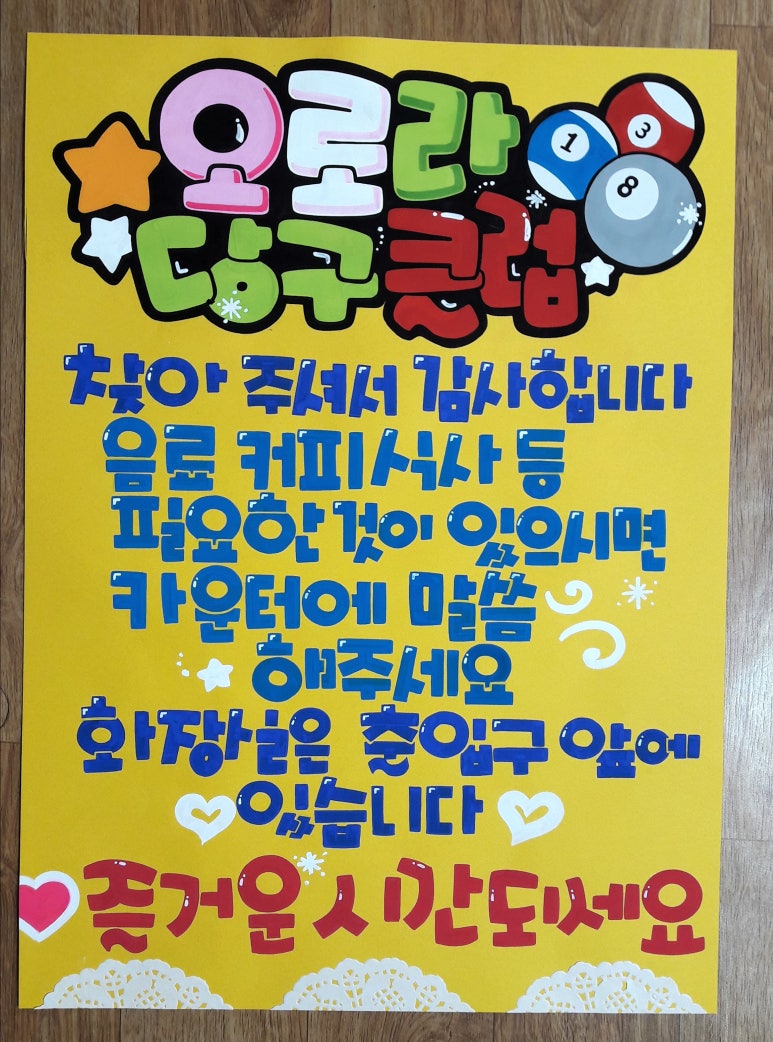 오로라
당구클럽
1
3
8
찾아 주셔서 감사합니다
음료 커피 식사 등
필요한 것이 있으시면
카운터에 말씀
해주세요
화장실은 출입구 앞에
있습니다
즐거운 시간되세요